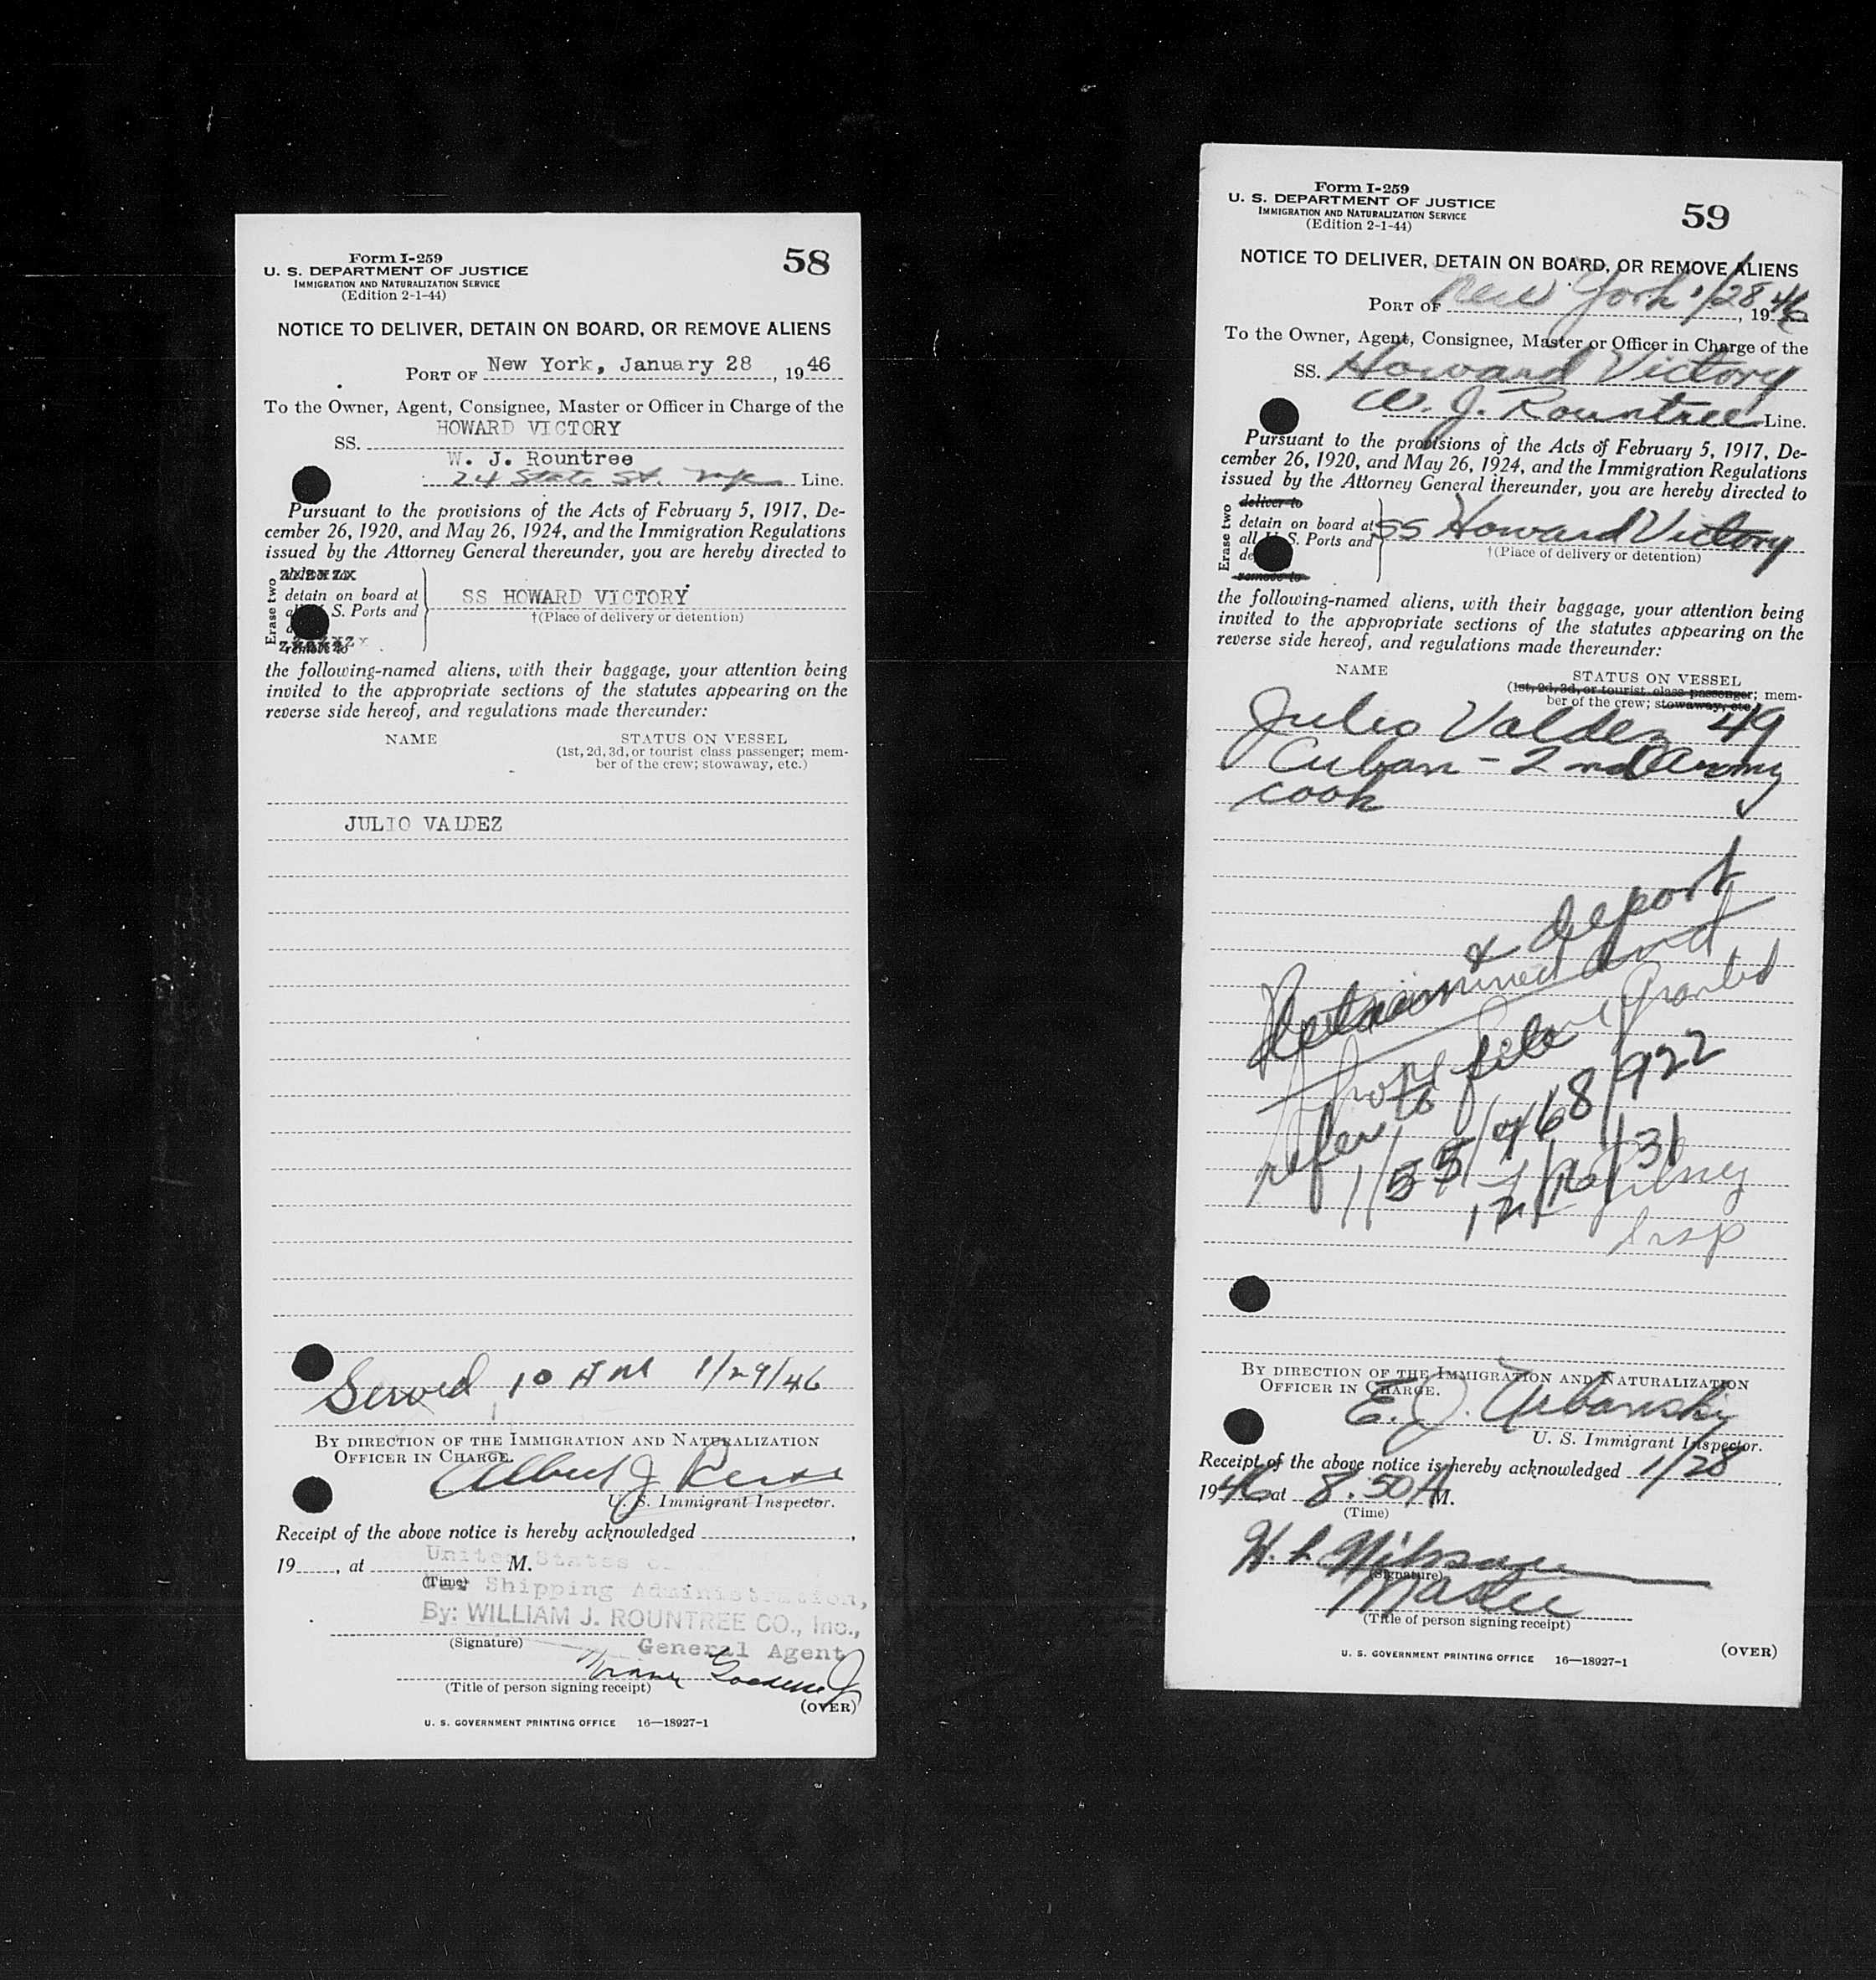 Form I-259
U. S. DEPARTMENT OF JUSTICE
IMMIGRATION AND NATURALIZATION SERVICE
(Edition 2-1-44)
58
NOTICE TO DELIVER, DETAIN ON BOARD, OR REMOVE ALIENS
PORT OF New York, January 28, 1946
To the Owner, Agent, Consignee, Master or Officer in Charge of the
SS. HOWARD VICTORY
W. J. Rountree
24 State St. Line.
Pursuant to the provisions of the Acts of February 5, 1917, De-
cember 26, 1920, and May 26, 1924, and the Immigration Regulations
issued by the Attorney General thereunder, you are hereby directed to
Erase two
detain on board at
S. Ports and
SS HOWARD VICTORY
remove to
†(Place of delivery or detention)
the following-named aliens, with their baggage, your attention being
invited to the appropriate sections of the statutes appearing on the
reverse side hereof, and regulations made thereunder:
NAME STATUS ON VESSEL
(1st, 2d, 3d, or tourist class passenger; mem-
ber of the crew; stowaway, etc.)
JULIO VALDEZ
Served 10 AM 1/29/46
BY DIRECTION OF THE IMMIGRATION AND NATURALIZATION
OFFICER IN CHARGE.
Albert J
U. S. Immigrant Inspector.
Receipt of the above notice is hereby acknowledged
19 , at M.
United States o
(Time)
Shipping Administration,
By: WILLIAM J. ROUNTREE CO., Inc.,
(Signature) General Agent
(Title of person signing receipt)
(OVER)
U. S. GOVERNMENT PRINTING OFFICE 16—18927-1
Form I-259
U. S. DEPARTMENT OF JUSTICE
IMMIGRATION AND NATURALIZATION SERVICE
(Edition 2-1-44)
59
NOTICE TO DELIVER, DETAIN ON BOARD, OR REMOVE ALIENS
PORT OF New York 1/28, 1946
To the Owner, Agent, Consignee, Master or Officer in Charge of the
SS. Howard Victory
W. J. Rountree Line.
Pursuant to the provisions of the Acts of February 5, 1917, De-
cember 26, 1920, and May 26, 1924, and the Immigration Regulations
issued by the Attorney General thereunder, you are hereby directed to
Erase two
deliver to
detain on board at
all U. S. Ports and
SS Howard Victory
de
remove to
†(Place of delivery or detention)
the following-named aliens, with their baggage, your attention being
invited to the appropriate sections of the statutes appearing on the
reverse side hereof, and regulations made thereunder:
NAME STATUS ON VESSEL
(1st, 2d, 3d, or tourist class passenger; mem-
ber of the crew; stowaway, etc.)
Julio Valdez 49
Cuban - 2nd Army
cook
& deport
and
granted
file
refer to
12/16/31
Insp
BY DIRECTION OF THE IMMIGRATION AND NATURALIZATION
OFFICER IN CHARGE.
E. J. Urbansky
U. S. Immigrant Inspector.
Receipt of the above notice is hereby acknowledged 1/28,
1946 at 8:50 A M.
(Time)
(Signature)
Master
(Title of person signing receipt)
U. S. GOVERNMENT PRINTING OFFICE 16—18927-1
(OVER)